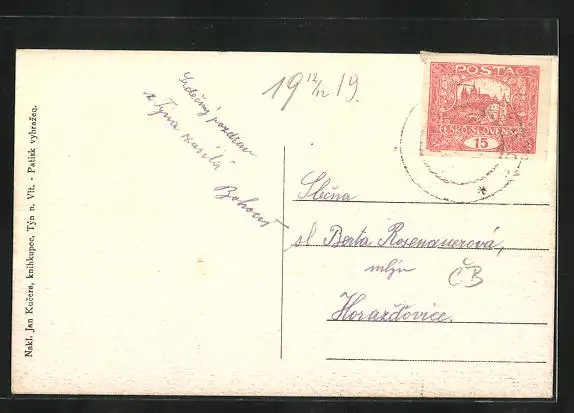 Nakl. Jan Kučera, knihkupec, Týn n. Vlt. - Patisk vyhražen.
Srdečný pozdrav
z Týna zasílá
Bohouš
19 12/12 19.
POSTA
ČESKO-SLOVENSKÁ
15
Slečna
sl Berta Rosenauerová,
mlýn
ČB
Horažďovice.